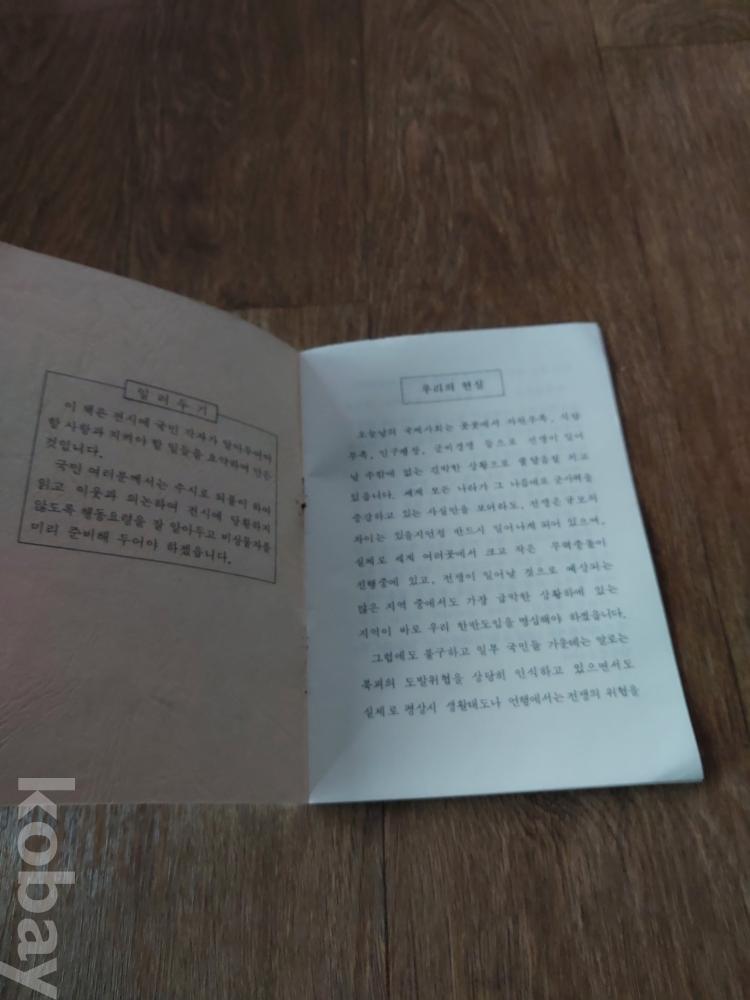 일러두기
이 책은 전시에 국민 각자가 알아두어야
할 사항과 지켜야 할 일들을 요약하여 만든
것입니다.
국민 여러분께서는 수시로 되풀이 하여
읽고 이웃과 의논하여 전시에 당황하지
않도록 행동요령을 잘 알아두고 비상물자를
미리 준비해 두어야 하겠습니다.
우리의 현실
오늘날의 국제사회는 곳곳에서 자원부족, 식량
부족, 인구팽창, 군비경쟁 등으로 전쟁이 일어
날 수밖에 없는 긴박한 상황으로 줄달음질 치고
있읍니다. 세계 모든 나라가 그 나름대로 군사력을
증강하고 있는 사실만을 보더라도, 전쟁은 규모의
차이는 있을지언정 반드시 일어나게 되어 있으며,
실제로 세계 여러곳에서 크고 작은 무력충돌이
진행중에 있고, 전쟁이 일어날 것으로 예상되는
많은 지역 중에서도 가장 급박한 상황하에 있는
지역이 바로 우리 한반도임을 명심해야 하겠읍니다.
그럼에도 불구하고 일부 국민들 가운데는 말로는
북괴의 도발위협을 상당히 인식하고 있으면서도
실제로 평상시 생활태도나 언행에서는 전쟁의 위협을
kobay